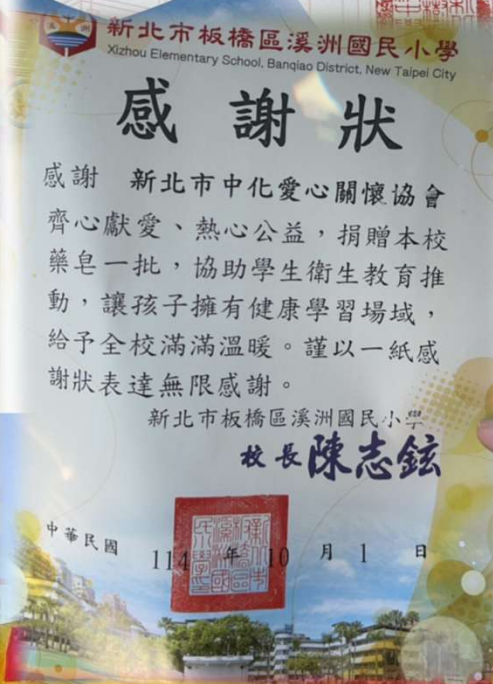 新北市板橋區溪洲國民小學
Xizhou Elementary School, Banqiao District, New Taipei City
感謝狀
感謝 新北市中化愛心關懷協會
齊心獻愛、熱心公益，捐贈本校
藥皂一批，協助學生衛生教育推
動，讓孩子擁有健康學習場域，
給予全校滿滿溫暖。謹以一紙感
謝狀表達無限感謝。
新北市板橋區溪洲國民小學
校長陳志鉉
中華民國 114 年 10 月 1 日